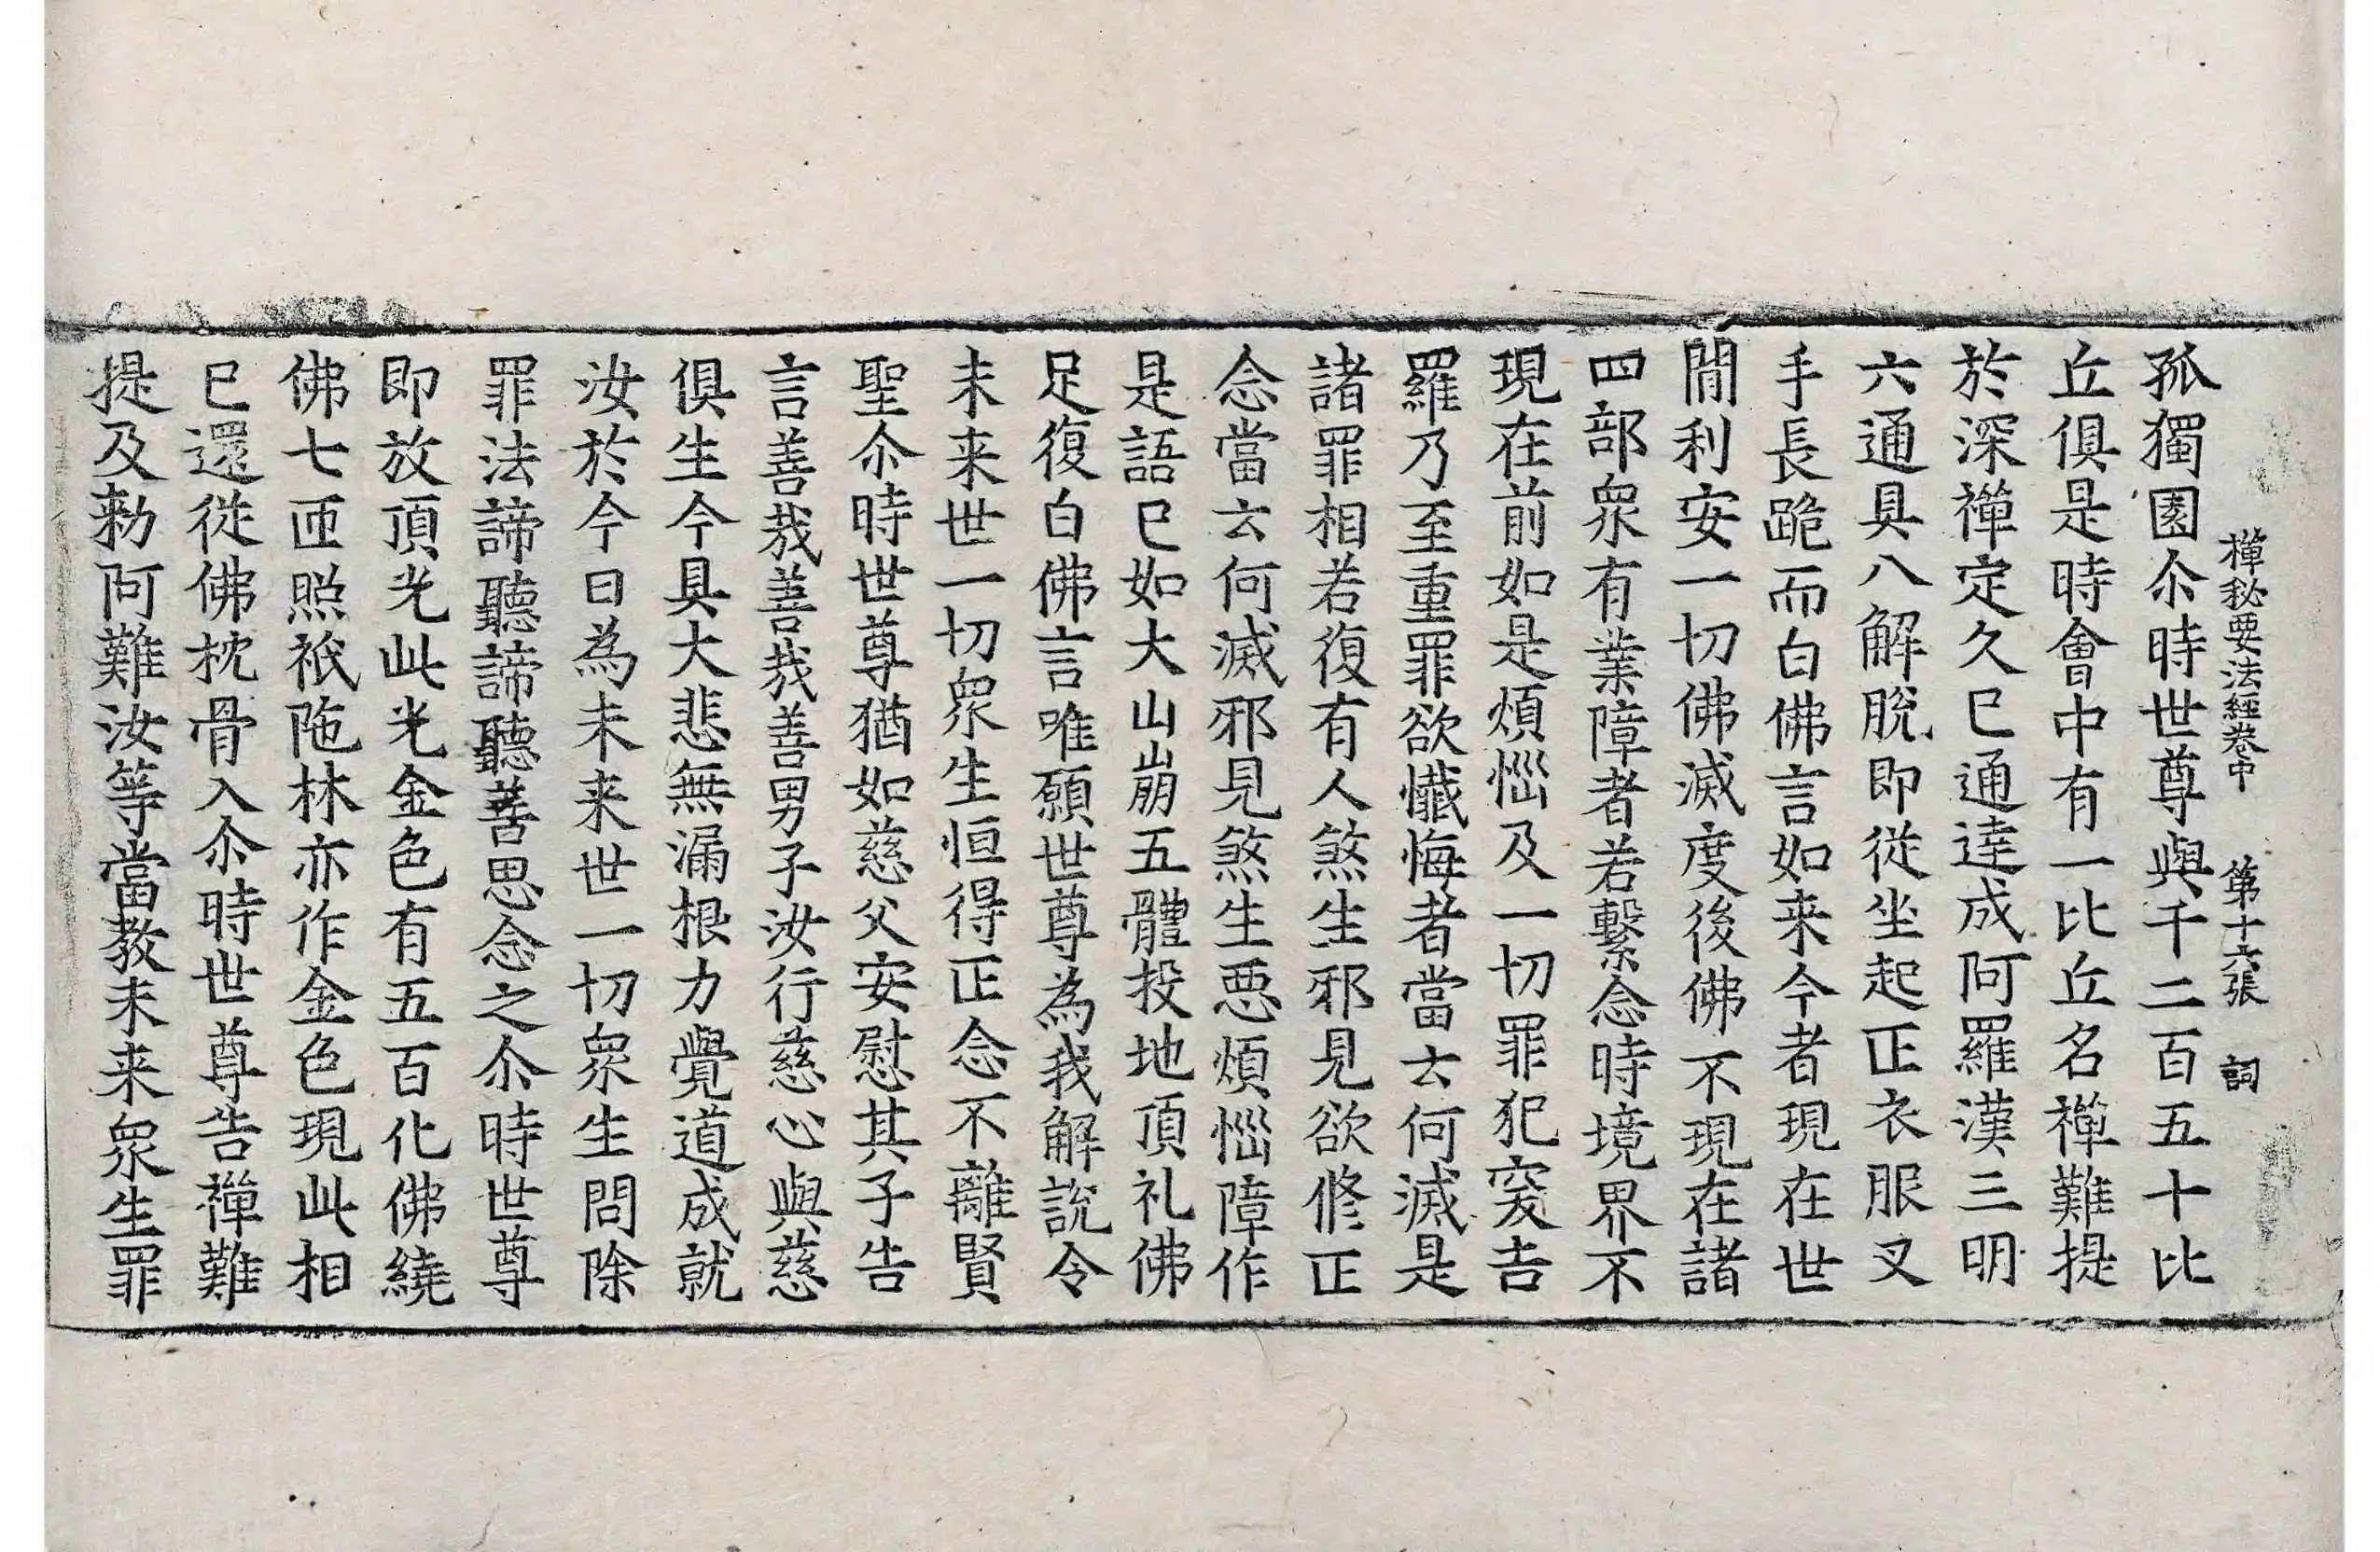 禪秘要法經卷中 第十六張 詞
孤獨園尒時世尊與千二百五十比
丘俱是時會中有一比丘名禪難提
於深禪定久已通達成阿羅漢三明
六通具八解脫即從坐起正衣服叉
手長跪而白佛言如来今者現在世
閒利安一切佛滅度後佛不現在諸
四部眾有業障者若繫念時境界不
現在前如是煩惱及一切罪犯突吉
羅乃至重罪欲懺悔者當云何滅是
諸罪相若復有人煞生邪見欲修正
念當云何滅邪見煞生惡煩惱障作
是語已如大山崩五體投地頂礼佛
足復白佛言唯願世尊為我解說令
未来世一切眾生恒得正念不離賢
聖尒時世尊猶如慈父安慰其子告
言善哉善哉善男子汝行慈心與慈
俱生今具大悲無漏根力覺道成就
汝於今日為未来世一切眾生問除
罪法諦聽諦聽善思念之尒時世尊
即放頂光此光金色有五百化佛繞
佛七匝照祇陁林亦作金色現此相
已還從佛枕骨入尒時世尊告禪難
提及勑阿難汝等當教未来眾生罪